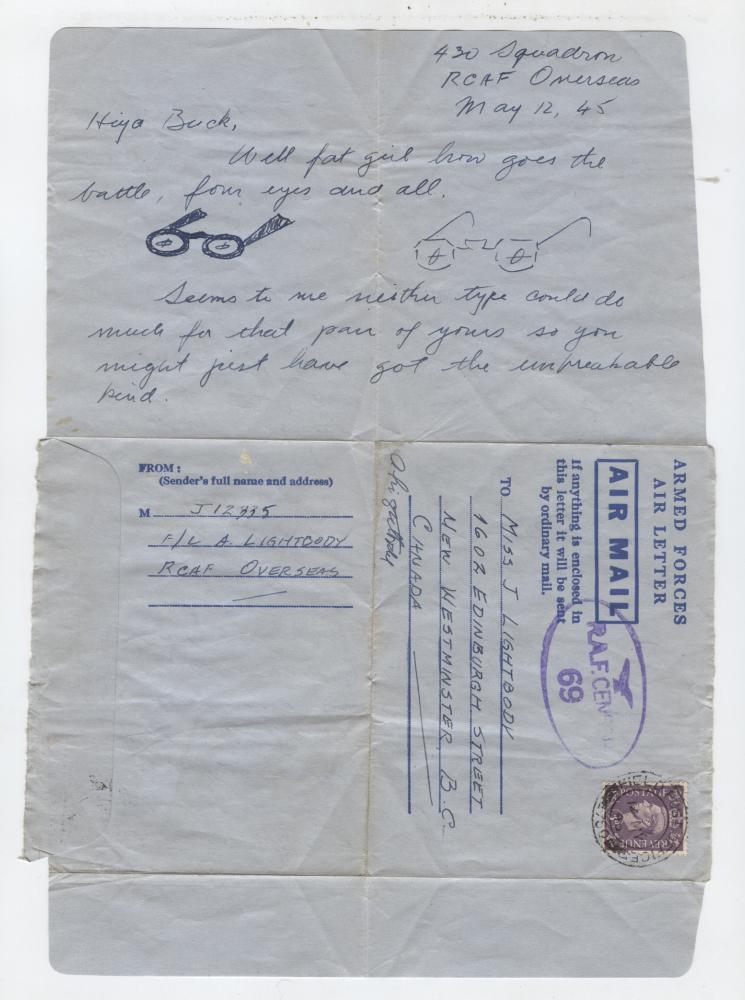 430 Squadron
RCAF Overseas
May 12, 45
Hiya Buck,
Well fat girl how goes the
battle, four eyes and all.
Seems to me neither type could do
much for that pair of yours so you
might just have got the unbreakable
kind.
FROM :
(Sender's full name and address)
M J12335
F/L A. LIGHTBODY
RCAF OVERSEAS
ARMED FORCES
AIR LETTER
AIR MAIL
If anything is enclosed in
this letter it will be sent
by ordinary mail.
TO MISS J LIGHTBODY
1602 EDINBURGH STREET
NEW WESTMINSTER, B.C.
CANADA
A Lightbody
R.A.F. CENSOR
69
POSTAGE
REVENUE
3D
FIELD POST OFFICE